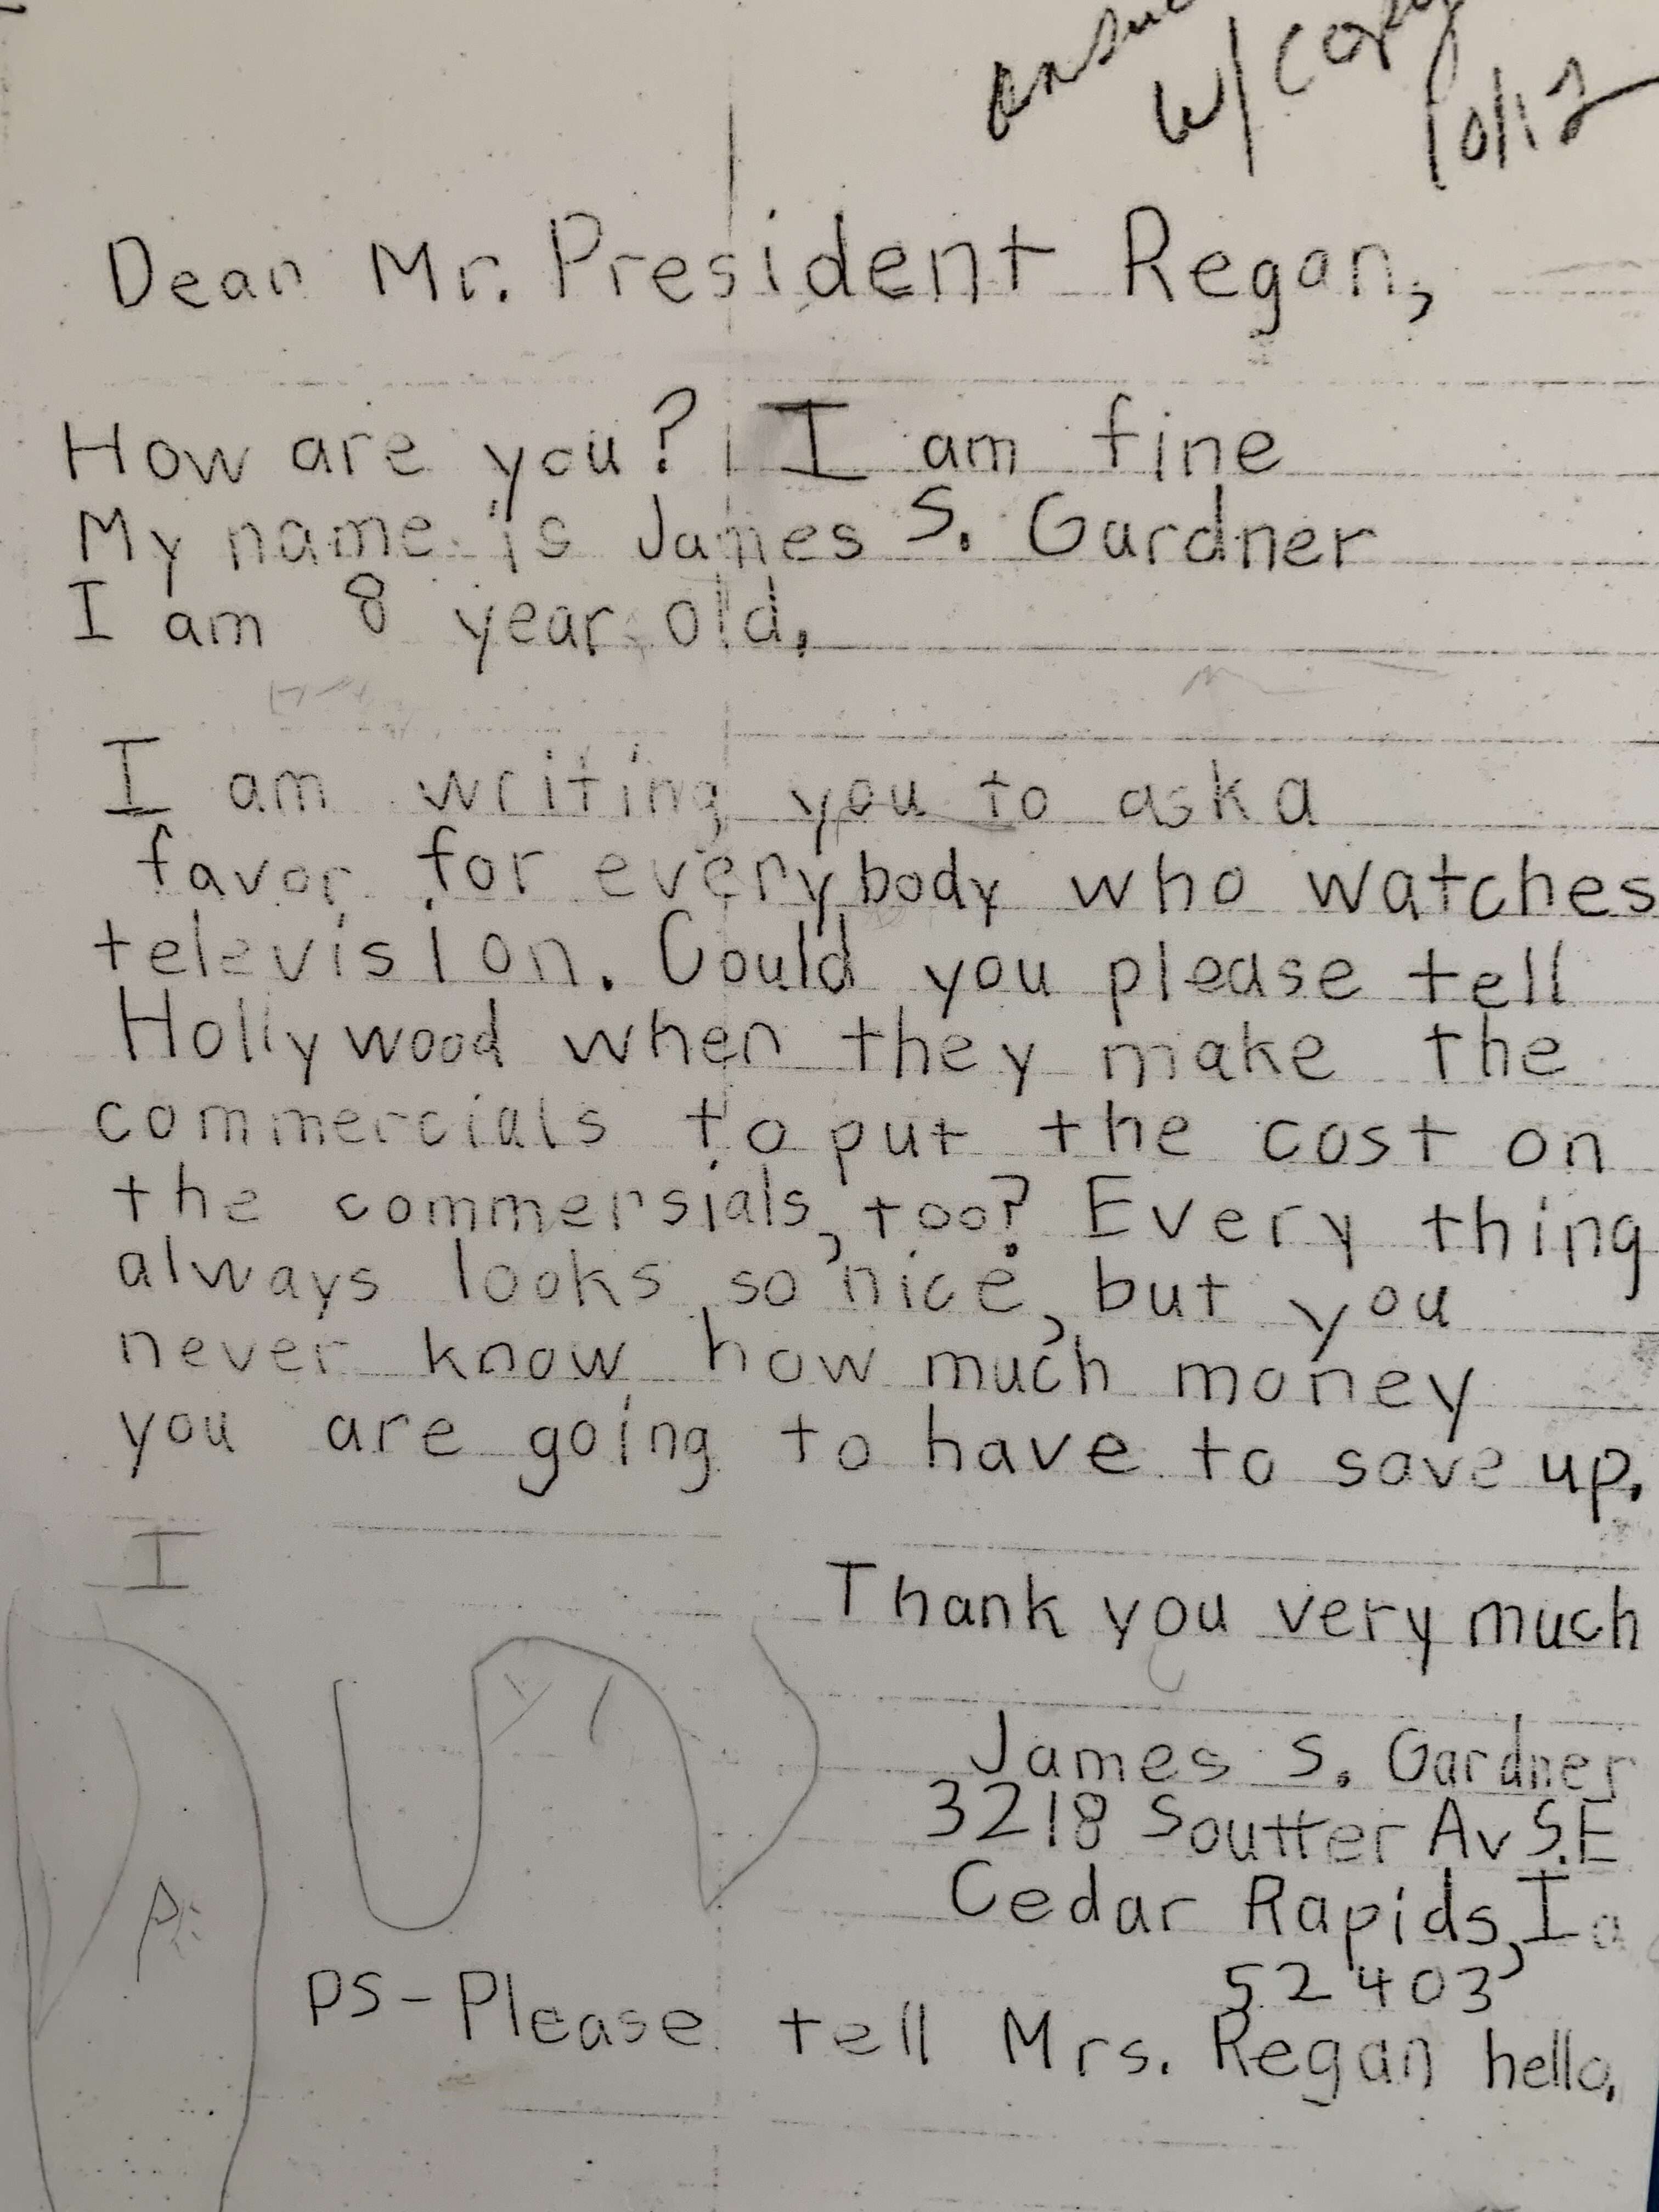 w/copy
10/12
Dear Mr. President Regan,
How are you? I am fine
My name is James S. Gardner
I am 8 year old.
I am writing you to ask a
favor for everybody who watches
television. Could you please tell
Hollywood when they make the
commercials to put the cost on
the commersials, too? Every thing
always looks so nice, but you
never know how much money
you are going to have to save up.
I
Thank you very much
James S. Gardner
3218 Soutter Av S.E
Cedar Rapids, Ia
52403
PS - Please tell Mrs. Regan hello.